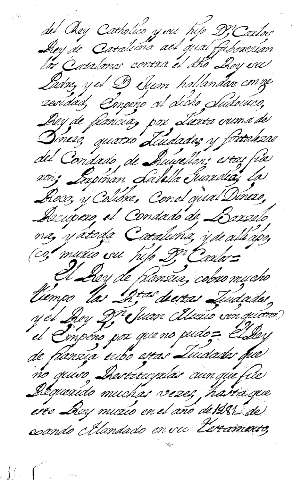 del Rey Catholico y su hijo Dn. Carlos
Rey de Cataluña al qual faborecian
los Catalanes contra el dho Rey su
Padre, y el D. Juan hallandose con ne
cesidad, Empeño al dicho Ludovico,
Rey de francia, por cierta suma de
Dinero, quatro Ciudades y fortalezas
del Condado de Rusellon; estas fue
ron; Perpiñan la
Roca, y Colibre, Con el qual Dinero,
Recupero, el Condado de Barzelo
na, y atoda Cataluña, y de alli apo
co, murio su hijo Dn. Carlos =
El Rey de francia, cobro mucho
tiempo las destas Ciudades,
y el Rey Dn. Juan Murio sin quitar
el Empeño por que no pudo = El Rey
de francia tubo estas Ciudades que
no quiso Restituyrlas aunque fue
Requerido muchas vezes, hasta que
este Rey murio en el año de de
xando Mandado en su Testamento,